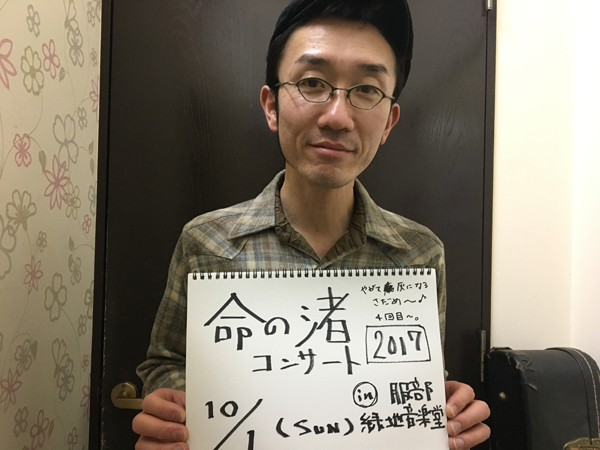 やがて灰になる
さだめ〜♪
4回目〜。
命の渚
コンサート
2017
10/1 (SUN)
in 服部
緑地音楽堂